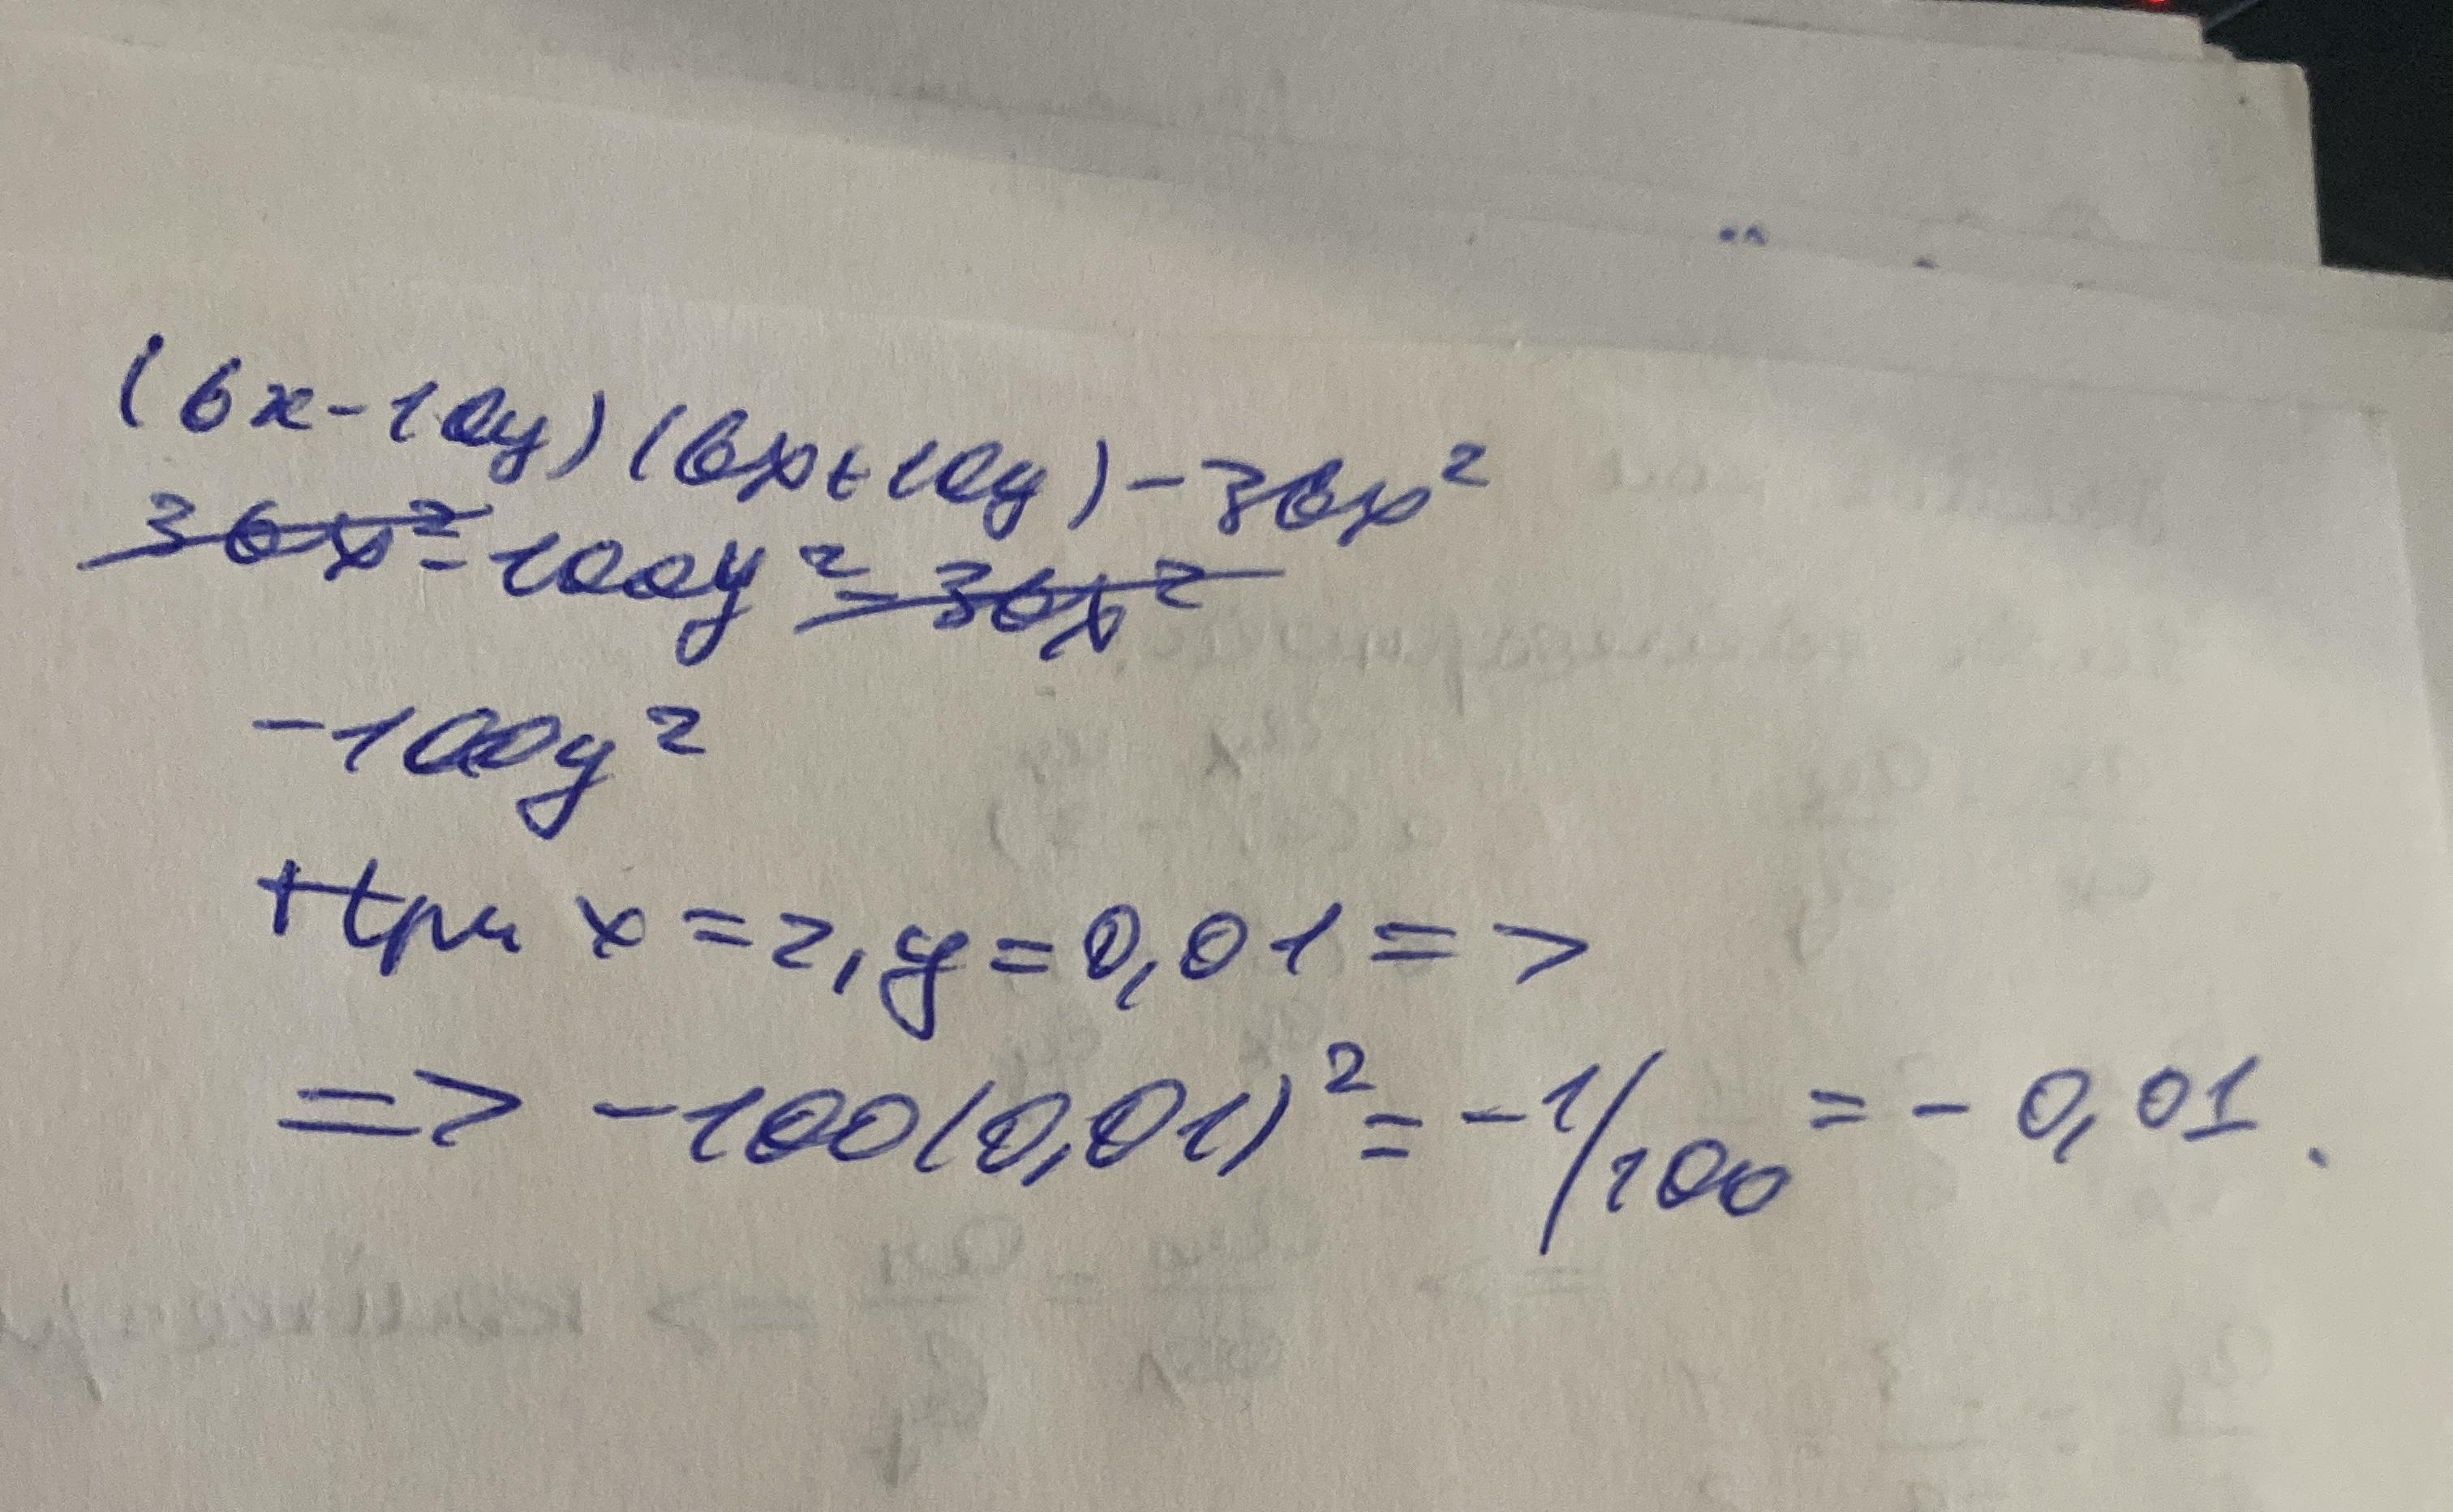 (6x-10y)(6x+10y)-36x²
36x²-100y²-36x²
-100y²
При x=2, y=0,01 =>
=> -100(0,01)²= -1/100 = - 0,01.